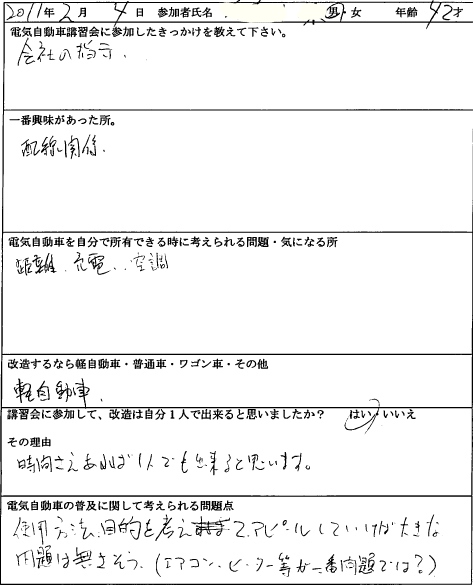 2011年 2月 4日 参加者氏名 男・女 年齢 42才
電気自動車講習会に参加したきっかけを教えて下さい。
会社の指示
一番興味があった所。
配線関係.
電気自動車を自分で所有できる時に考えられる問題・気になる所
距離、充電、空調
改造するなら軽自動車・普通車・ワゴン車・その他
軽自動車.
講習会に参加して、改造は自分1人で出来ると思いましたか？ はい・いいえ
その理由
時間さえあれば1人でも出来ると思います。
電気自動車の普及に関して考えられる問題点
使用方法、目的を考えてアピールしていけば大きな
問題は無さそう、(エアコン、ヒーター等が一番問題では?)